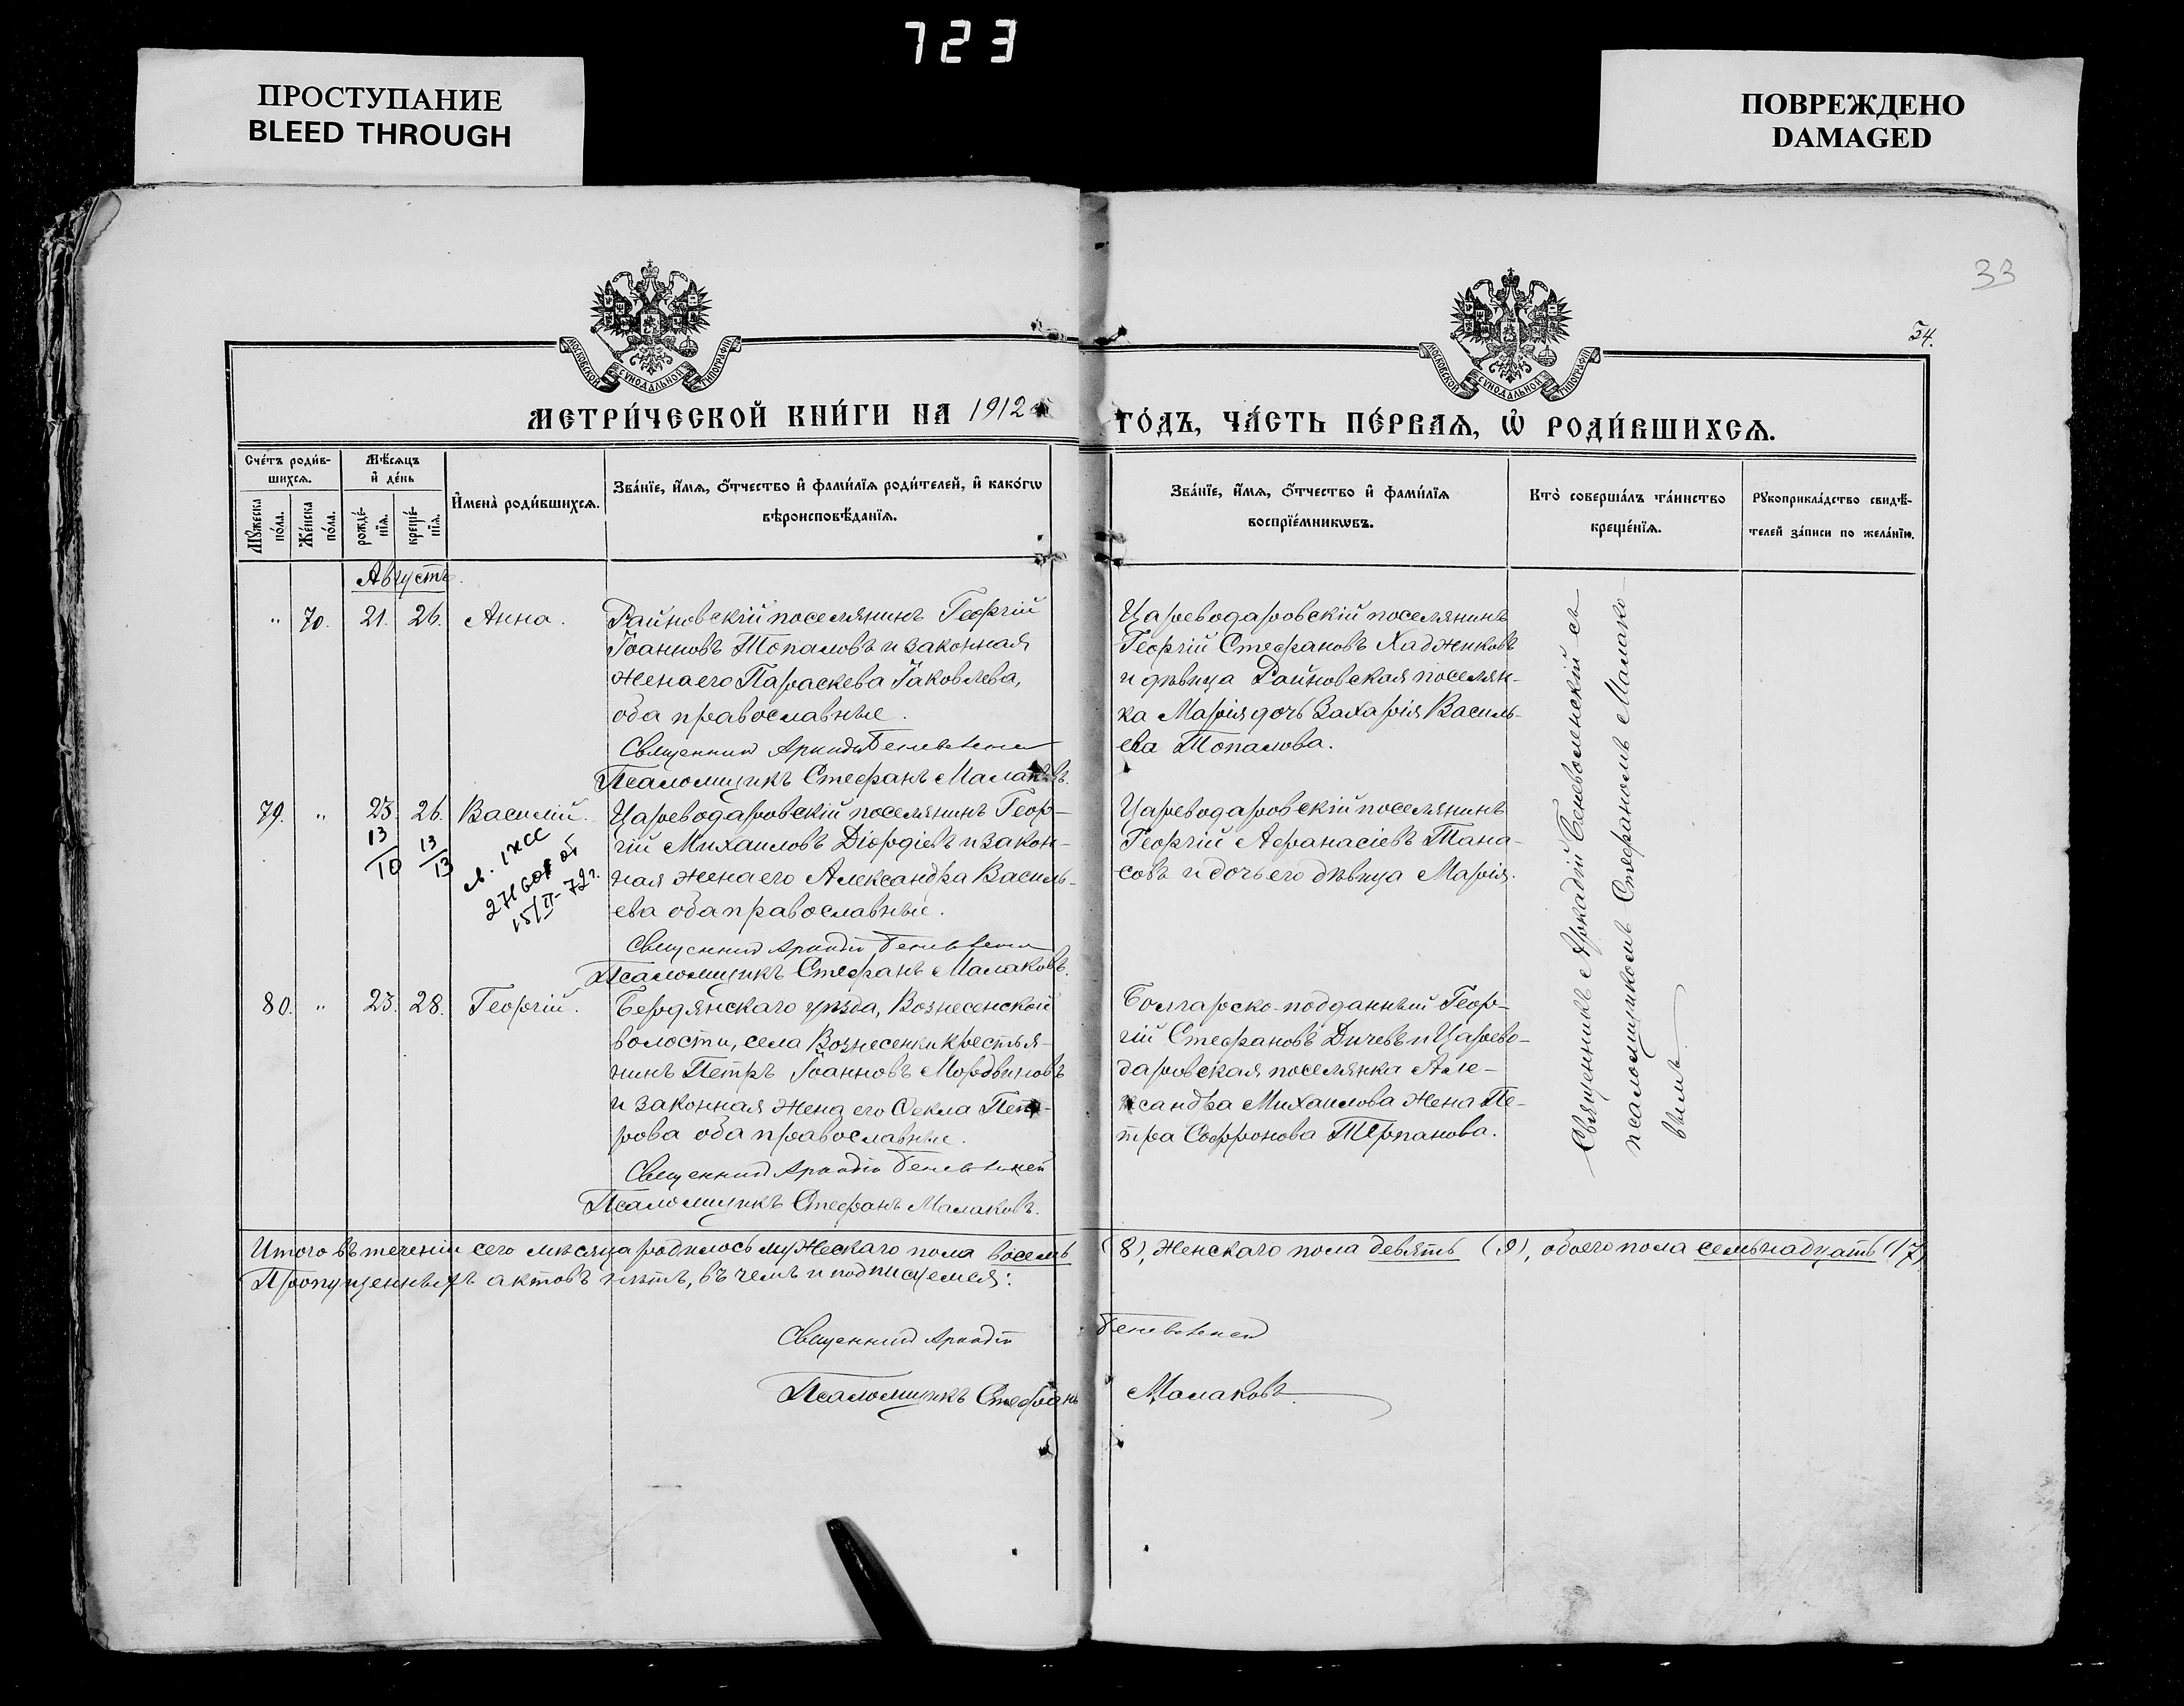 723
ПРОСТУПАНИЕ
BLEED THROUGH
ПОВРЕЖДЕНО
DAMAGED
33
34.
МОСКОВСКОЙ СѴНОДАЛЬНОЙ ТИПОГРАФІИ
МОСКОВСКОЙ СѴНОДАЛЬНОЙ ТИПОГРАФІИ
МЕТРИ́ЧЕСКОЙ КНИ́ГИ НА 1912
ГО́ДЪ, ЧА́СТЬ ПЕ́РВАѦ, Ѡ҆ РОДИ́ВШИХСѦ.
Сче́тъ роди́в-
шихсѧ.
Мꙋжеска по́ла.
Же́нска по́ла.
Мѣ́сѧцъ
и҆ де́нь
рожде́-
нїѧ.
креще́-
нїѧ.
И҆мена̀ роди́вшихсѧ.
Зва́нїе, и҆́мѧ, ѻ҆́тчество и҆ фами́лїѧ роди́телей, и҆ како́гѡ
вѣроисповѣ́данїѧ.
Зва́нїе, и҆́мѧ, ѻ҆́тчество и҆ фами́лїѧ
воспрїе́мникѡвъ.
Кто̀ соверша́лъ та́инство
креще́нїѧ.
Рꙋкоприкла́дство свидѣ́-
телей за́писи по жела́нїю.
Августъ.
" 70. 21. 26. Анна.
Райновскій поселянинъ Георгій
Іоанновъ Топаловъ и законная
жена его Параскева Іаковлева,
оба православные.
Священникъ Аркадій Беневоленскій
Псаломщикъ Стефанъ Малаковъ.
Цареводаровскій поселянинъ
Георгій Стефановъ Хаджиковъ
и дѣвица Райновская поселян-
ка Марія дочь Захарія Василь-
ева Топалова.
79. " 23. 26. Василій.
13/10 13/13
271601 от
15/II-72г.
Цареводаровскій поселянинъ Геор-
гій Михаиловъ Діордіевъ и закон-
ная жена его Александра Василь-
ева оба православные.
Священникъ Аркадій Беневоленскій
Псаломщикъ Стефанъ Малаковъ.
Цареводаровскій поселянинъ
Георгій Афанасіевъ Тана-
совъ и дочь его дѣвица Марія.
80. " 23. 28. Георгій.
Бердянскаго уѣзда, Вознесенской
волости, села Вознесенки крестья-
нинъ Петръ Іоанновъ Мордвиновъ
и законная жена его Ѳекла Пет-
рова оба православные.
Священникъ Аркадій Беневоленскій
Псаломщикъ Стефанъ Малаковъ.
Болгарско-подданный Геор-
гій Стефановъ Дичевъ и Царево-
даровская поселянка Але-
ксандра Михаилова жена Пе-
тра Софронова Терпанова.
Священникъ Аркадій Беневоленскій съ
псаломщикомъ Стефаномъ Малако-
вымъ
Итого въ теченіи сего мѣсяца родилось мужескаго пола восемь (8), женскаго пола девять (9), обоего пола семьнадцать (17)
Пропущенныхъ актовъ нѣтъ, въ чемъ и подписуемся:
Священникъ Аркадій Беневоленскій
Псаломщикъ Стефанъ Малаковъ